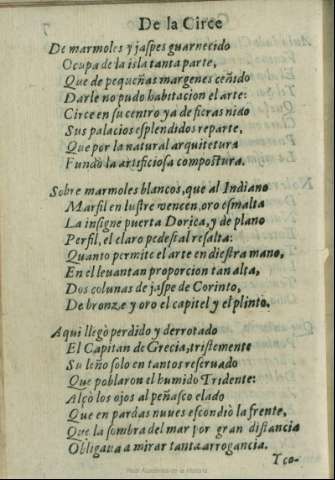 De la Circe
De marmoles y jaspes guarnecido
Ocupa de la isla tanta parte,
Que de pequeñas margenes ceñido
Darle no pudo habitacion el arte:
Circe en su centro ya de fieras nido
Sus palacios esplendidos reparte,
Que por la natural arquitetura
Fundò la artificiosa compostura.
Sobre marmoles blancos, que al Indiano
Marfil en lustre vencen, oro esmalta
La insigne puerta Dorica, y de plano
Perfil, el claro pedestal resalta:
Quanto permite el arte en diestra mano,
En el leuantan proporcion tan alta,
Dos colunas de jaspe de Corinto,
De bronze y oro el capitel y el plinto.
Aqui llegò perdido y derrotado
El Capitan de Grecia, tristemente
Su leño solo en tantos reseruado
Que poblaron el humido Tridente:
Alçò los ojos al peñasco elado
Que en pardas nuues escondiò la frente,
Que la sombra del mar por gran distancia
Obligaua a mirar tanta arrogancia.
Y co-
Real Academia de la Historia